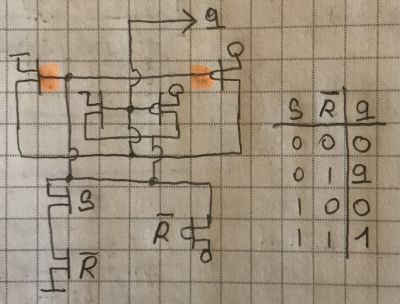 q
S
R̅
R̅
S R̅ q
0 0 0
0 1 q
1 0 0
1 1 1